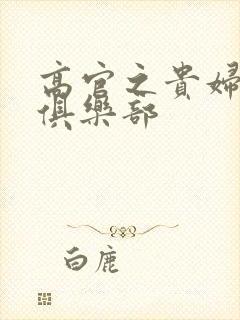 高官之貴婦
俱樂部
白鹿